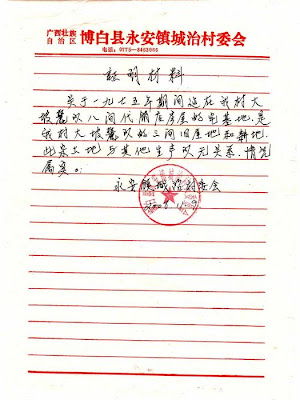 广西壮族
自治区
博白县永安镇城治村委会
电话：0775-8462066
证明材料
关于一九七五年期间 在我村大
坡麓队八间代 店房屋的 基地，是
我村大坡麓队的三间旧屋地和 地，
此宗土地与其他生产队无关系，情况
属实。
永安镇城治村委会